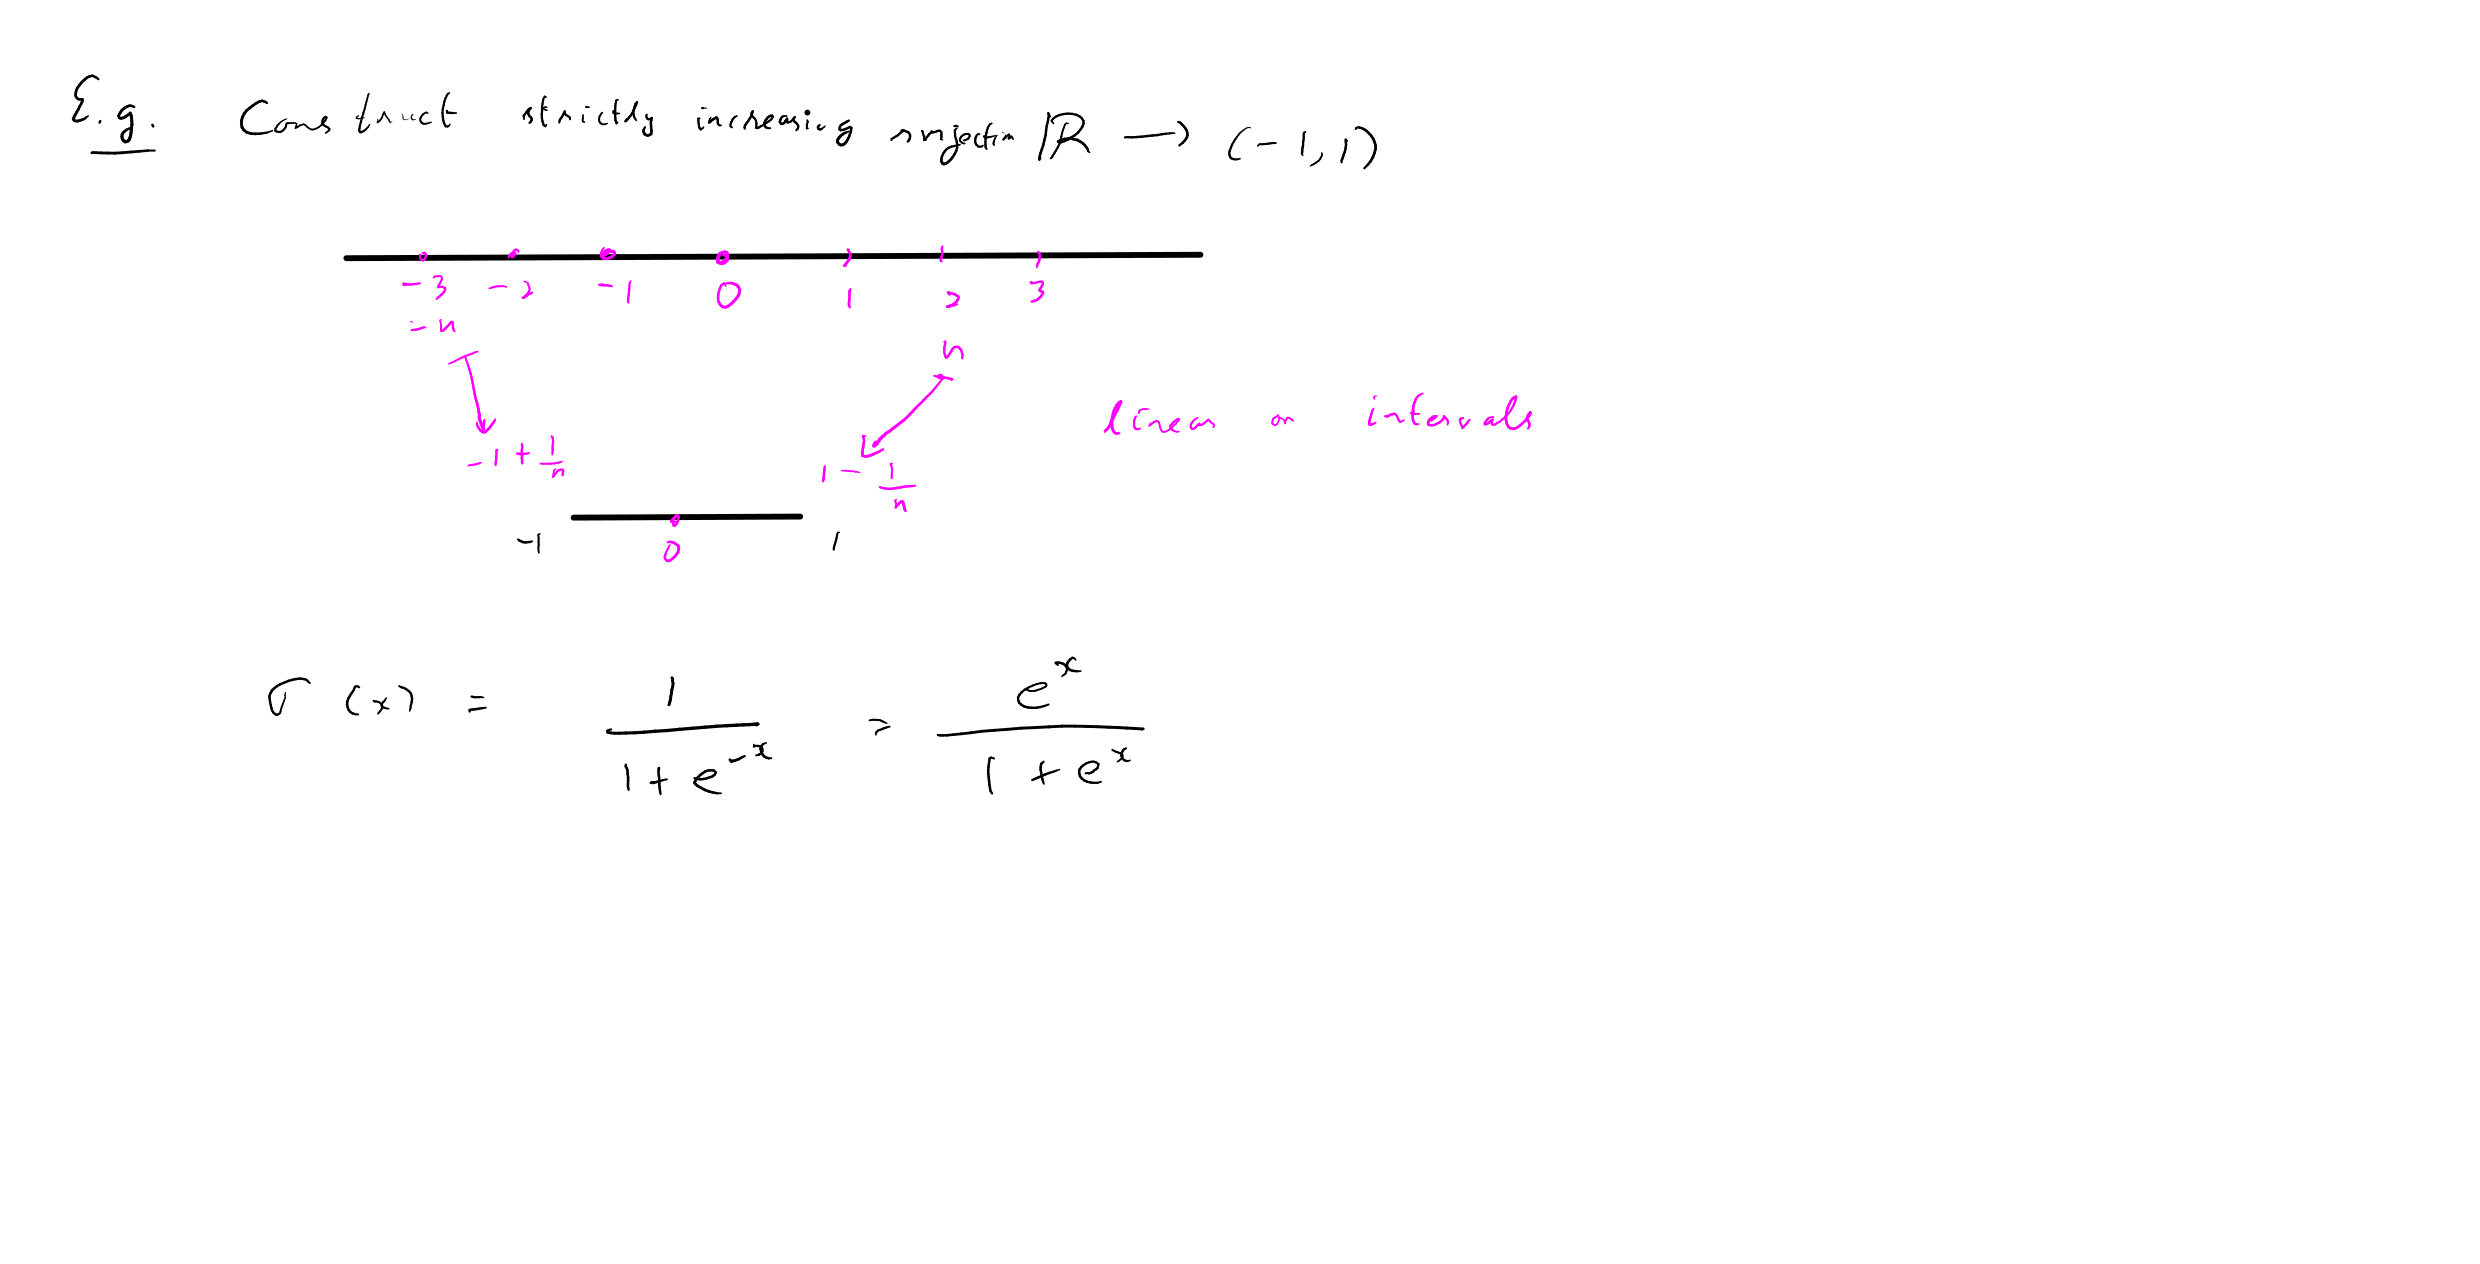 E.g. Construct strictly increasing surjection ℝ → (-1, 1)
-3 -2 -1 0 1 2 3
-n
n
linear on intervals
-1 + 1/n
1 - 1/n
-1 0 1
σ(x) = 1/(1 + e^{-x}) = e^x/(1 + e^x)